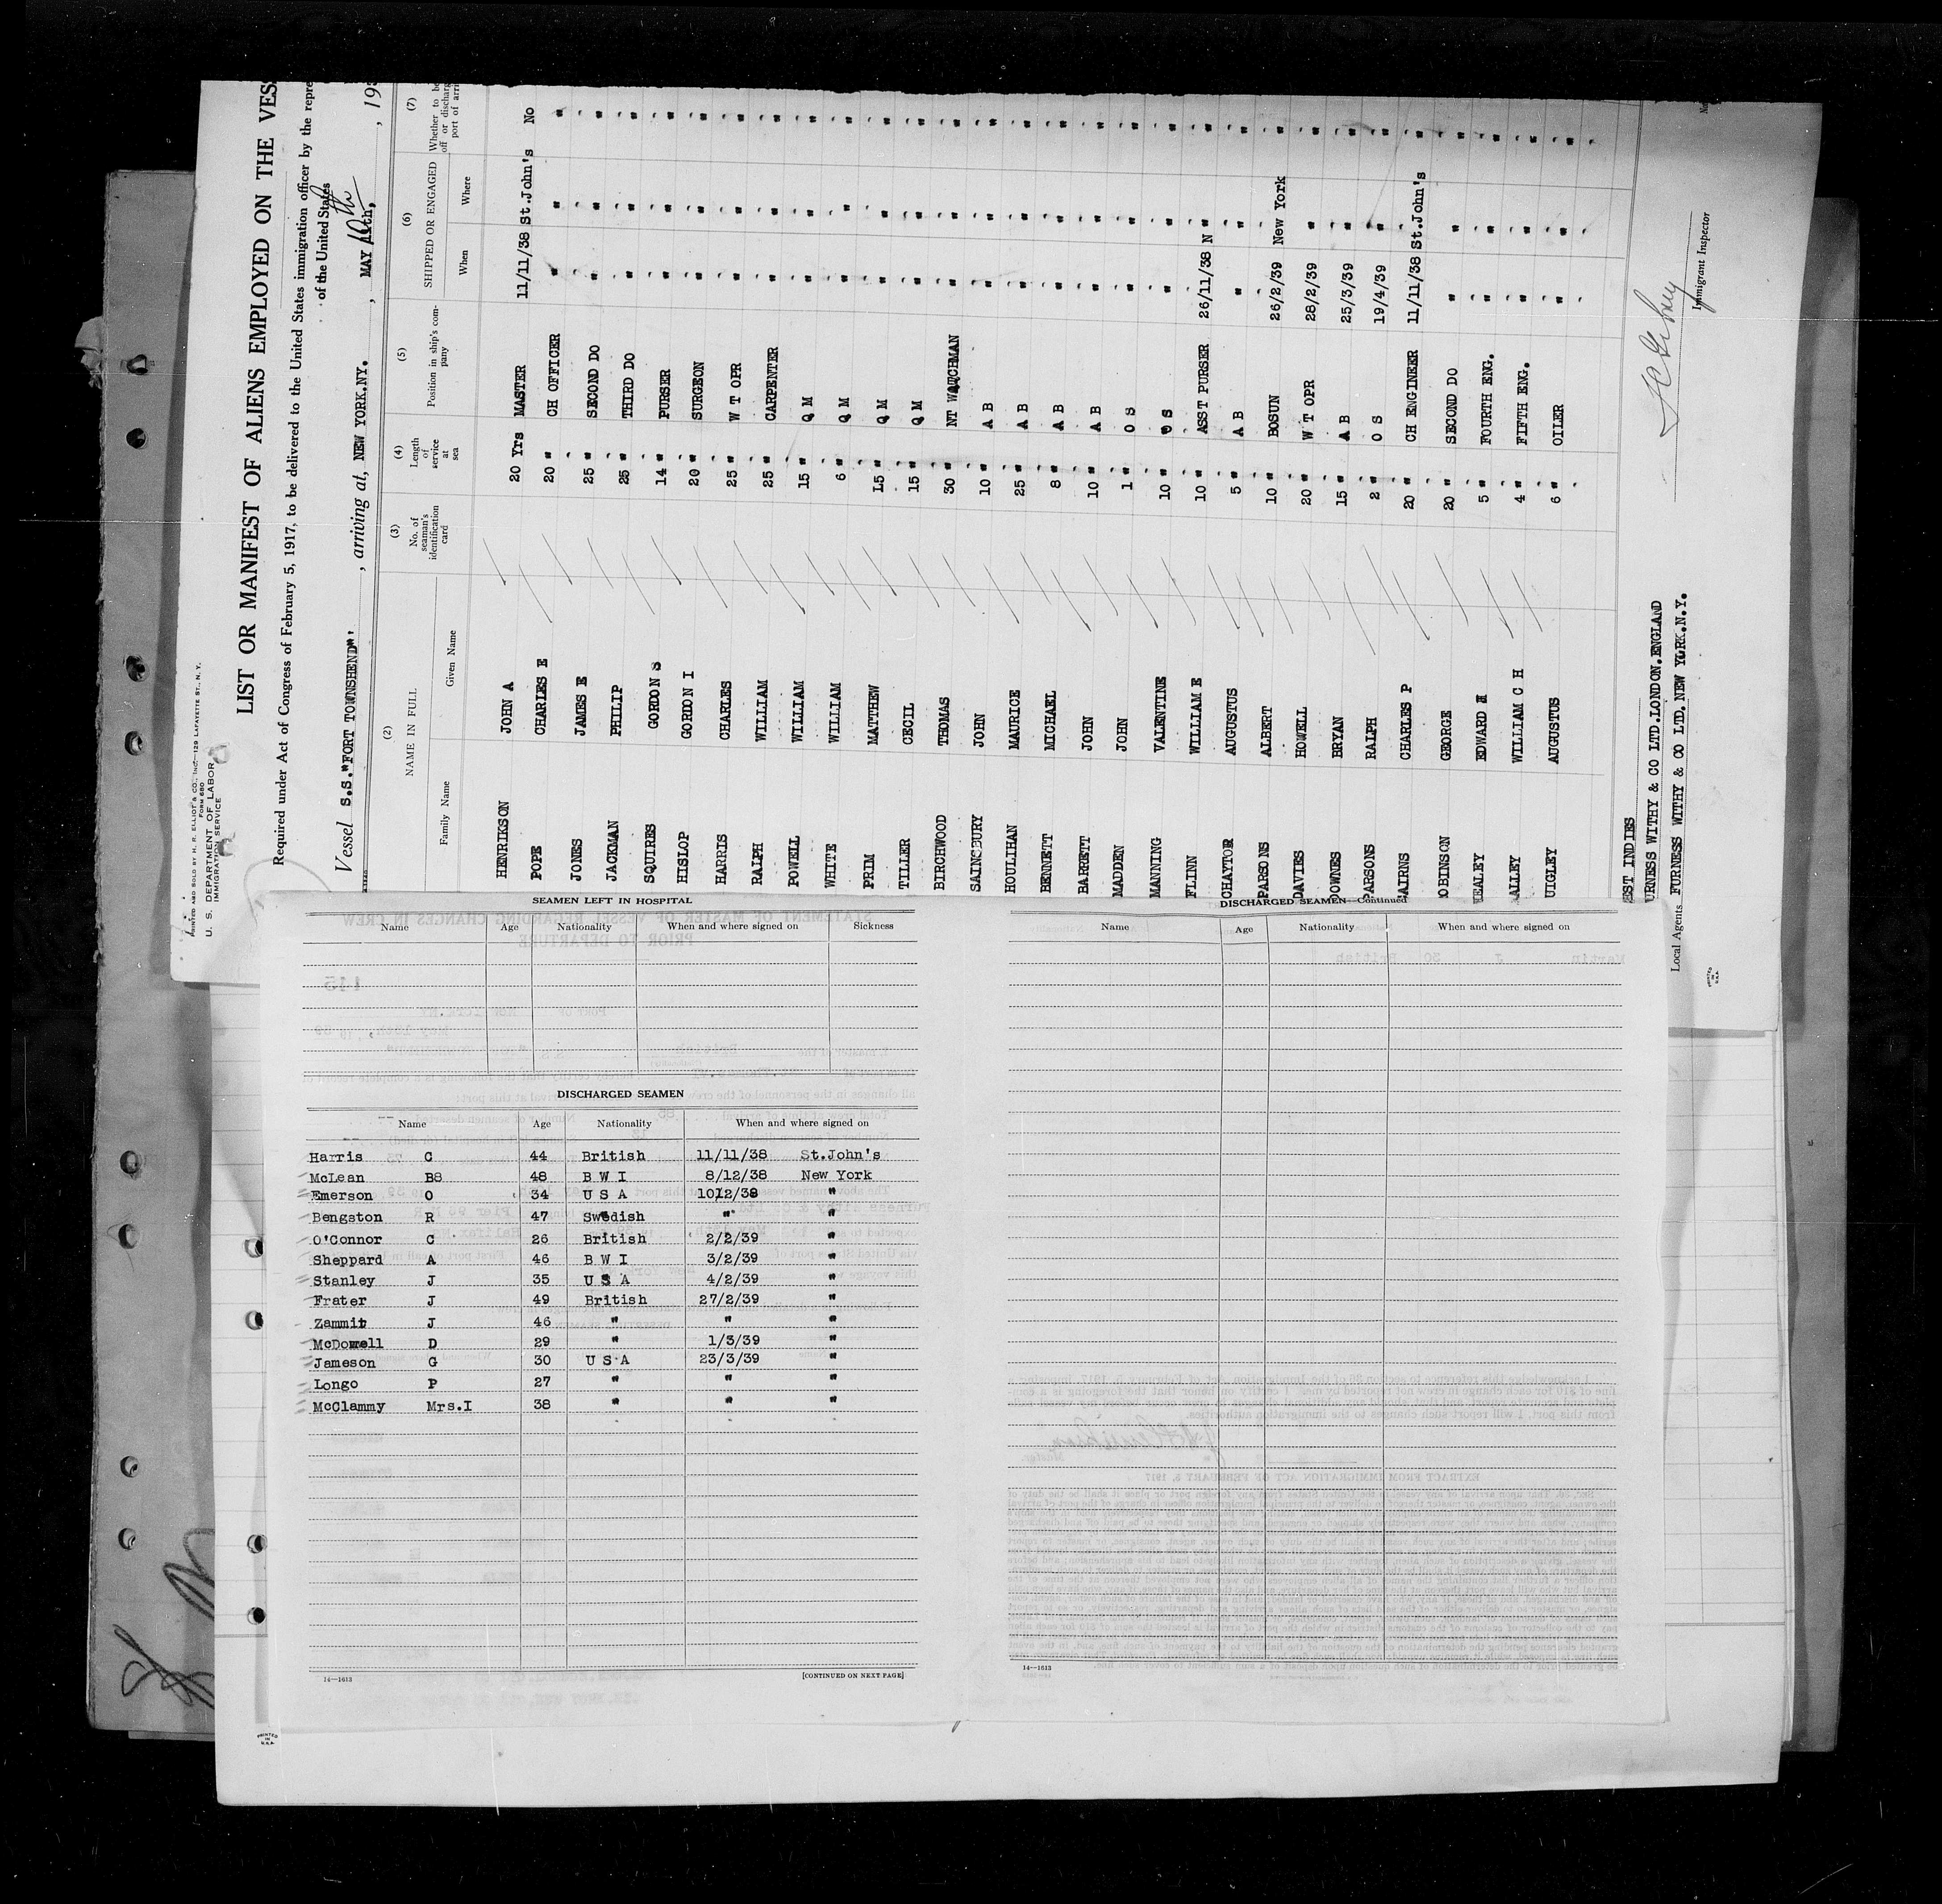 PRINTED AND SOLD BY H. R. ELLIOT & CO., INC., 129 LAFAYETTE ST., N. Y.
FORM 680
U. S. DEPARTMENT OF LABOR
IMMIGRATION SERVICE
LIST OR MANIFEST OF ALIENS EMPLOYED ON THE VES
Required under Act of Congress of February 5, 1917, to be delivered to the United States immigration officer by the repre
of the United States
Vessel S.S."FORT TOWNSHEND", arriving at, NEW YORK.NY. , MAY 10th , 19
(2) (3) (4) (5) (6) (7)
NAME IN FULL No. of seaman's identification card Length of service at sea Position in ship's company SHIPPED OR ENGAGED Whether to be
off or discharg
port of arri
Family Name Given Name When Where
HENRIKSON JOHN A 20 Yrs MASTER 11/11/38 St.John's No
POPE CHARLES E 20 " CH OFFICER " " "
JONES JAMES E 25 " SECOND DO " " "
JACKMAN PHILIP 25 " THIRD DO " " "
SQUIRES GORDON S 14 " PURSER " " "
HISLOP GORDON I 20 " SURGEON " " "
HARRIS CHARLES 25 " W T OPR " " "
RALPH WILLIAM 25 " CARPENTER " " "
POWELL WILLIAM 15 " Q M " " "
WHITE WILLIAM 6 " Q M " " "
PRIM MATTHEW 15 " Q M " " "
TILLER CECIL 15 " Q M " " "
BIRCHWOOD THOMAS 30 " NT WATCHMAN " " "
SAINSBURY JOHN 10 " A B " " "
HOULIHAN MAURICE 25 " A B " " "
BENNETT MICHAEL 8 " A B " " "
BARRETT JOHN 10 " A B " " "
MADDEN JOHN 1 " O S " " "
MANNING VALENTINE 10 " O S " " "
FLINN WILLIAM E 10 " ASST PURSER 26/11/38 N " "
CHAYTOR AUGUSTUS 5 " A B " " "
PARSONS ALBERT 10 " BOSUN 26/2/39 New York "
DAVIES HOWELL 20 " W T OPR 28/2/39 " "
DOWNES BRYAN 15 " A B 25/3/39 " "
PARSONS RALPH 2 " O S 19/4/39 " "
CAIRNS CHARLES P 20 " CH ENGINEER 11/11/38 St.John's "
OBINSON GEORGE 20 " SECOND DO " " "
HEALEY EDWARD 5 " FOURTH ENG. " " "
ALLEY WILLIAM C H 4 " FIFTH ENG. " " "
UIGLEY AUGUSTUS 6 " OILER " " "
EST INDIES
URNESS WITHY & CO LTD.LONDON.ENGLAND
Local Agents FURNESS WITHY & CO LTD.NEW YORK.N.Y.
Immigrant Inspector
SEAMEN LEFT IN HOSPITAL
Name Age Nationality When and where signed on Sickness
DISCHARGED SEAMEN
Name Age Nationality When and where signed on
Harris C 44 British 11/11/38 St.John's
McLean BS 48 B W I 8/12/38 New York
Emerson O 34 U S A 10/12/38 "
Bengston R 47 Swedish " "
O'Connor C 26 British 2/2/39 "
Sheppard A 46 B W I 3/2/39 "
Stanley J 35 U S A 4/2/39 "
Frater J 49 British 27/2/39 "
Zammit J 46 " " "
McDowell D 29 " 1/3/39 "
Jameson G 30 U S A 23/3/39 "
Longo P 27 " " "
McClammy Mrs.I 38 " " "
14—1613 [CONTINUED ON NEXT PAGE]
DISCHARGED SEAMEN—Continued
Name Age Nationality When and where signed on
14—1613
PRINTED
IN
U.S.A.